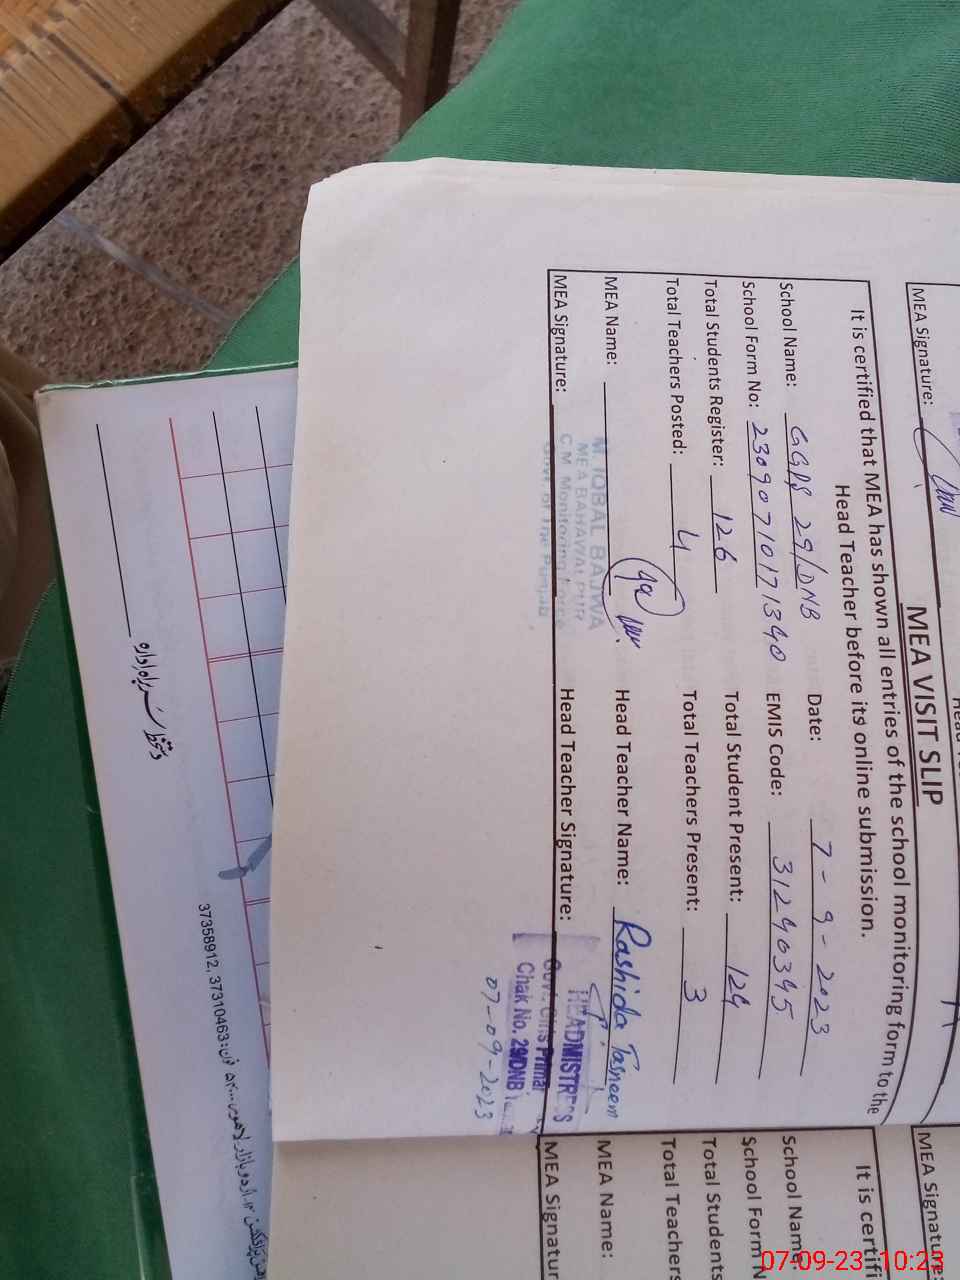 MEA Signature:
MEA VISIT SLIP
It is certified that MEA has shown all entries of the school monitoring form to the
Head Teacher before its online submission.
School Name: GGPS 29/DNB Date: 7-9-2023
School Form No: 23090710171390 EMIS Code: 31290395
Total Students Register: 126 Total Student Present: 124
Total Teachers Posted: 4 Total Teachers Present: 3
MEA Name: Head Teacher Name: Rashida Tasneem
MEA Signature: Head Teacher Signature:
M. IQBAL BAJWA
MEA BAHAWALPUR
C.M. Monitoring Force
Govt. of The Punjab
HEADMISTRESS
Govt. Girls Primar
Chak No. 29/DNB
07-09-2023
MEA Signature:
It is certifi
School Name:
School Form N
Total Students
Total Teachers
MEA Name:
MEA Signatur
دستخط سربراہ ادارہ
اردو بازار لاہور۔ فون: 37310463, 37358912
07-09-23 10:23